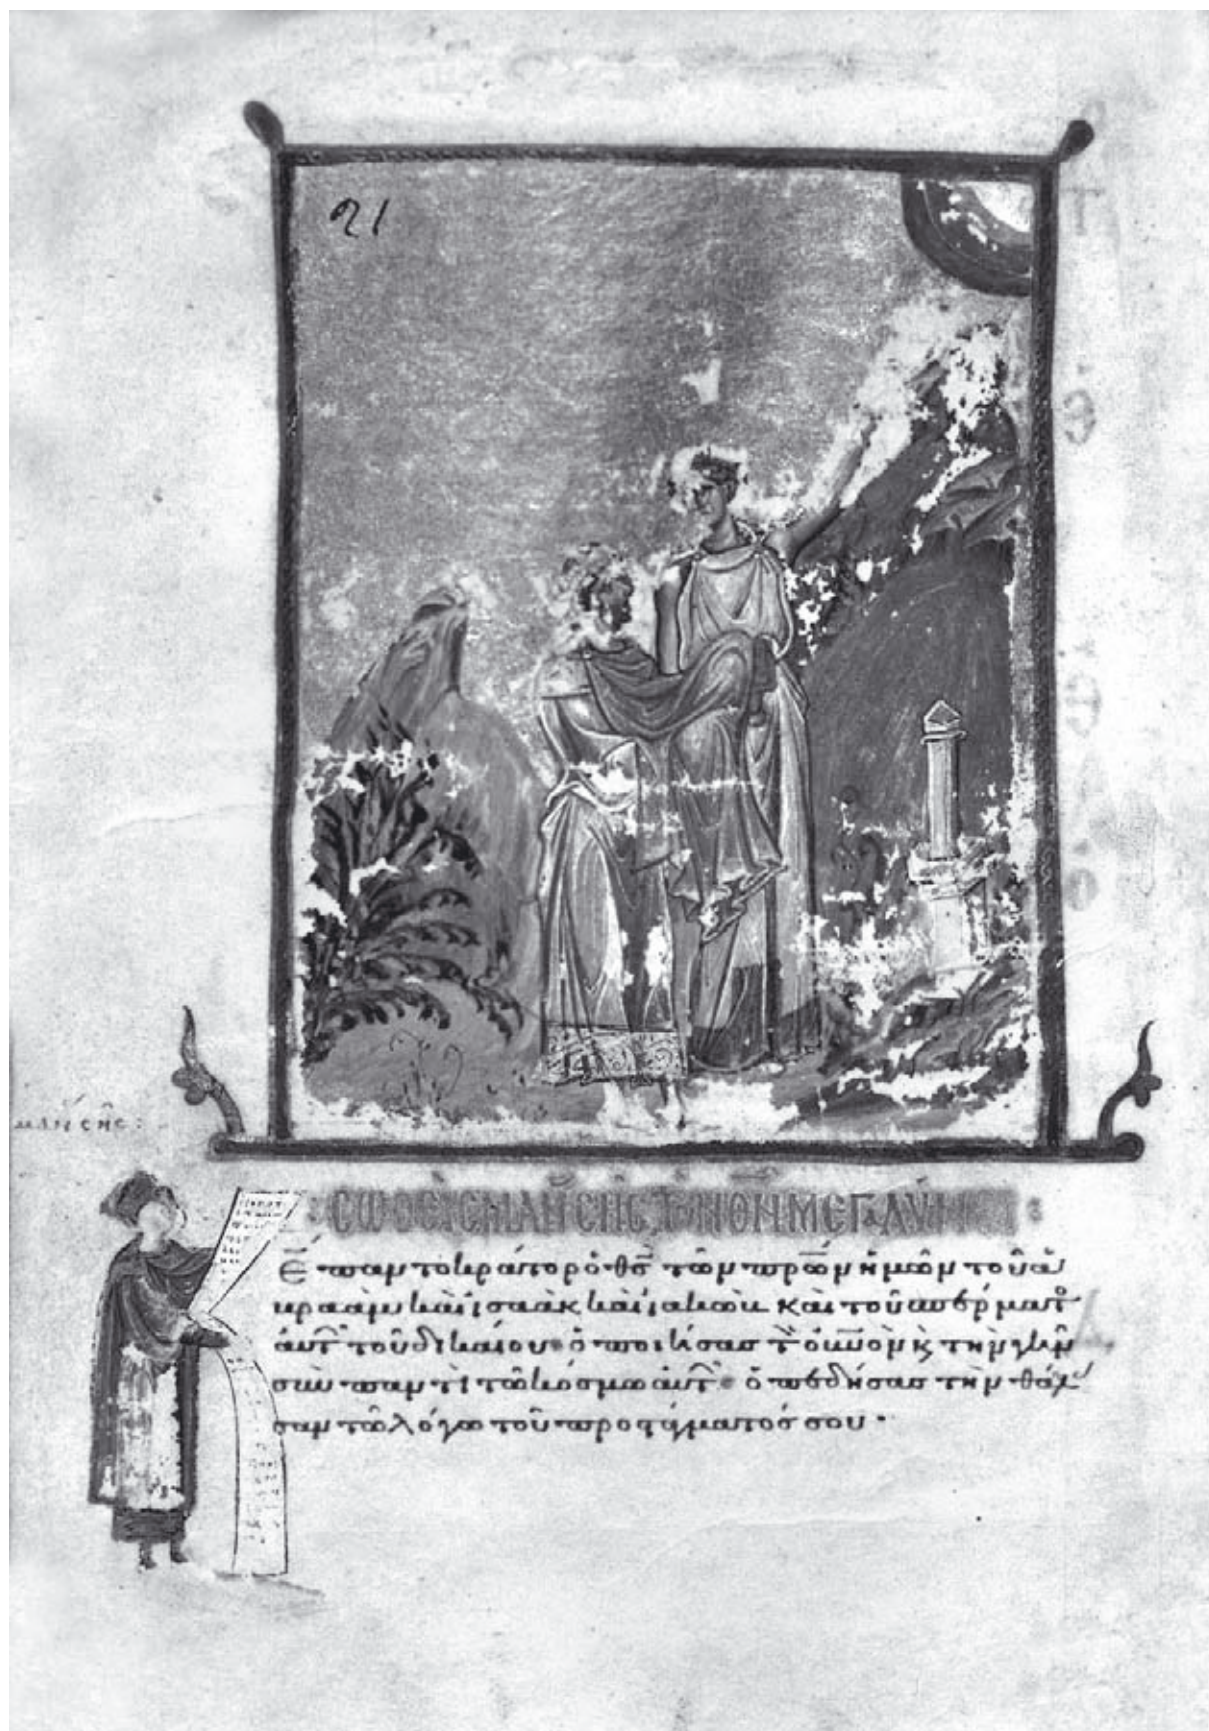 21
ΜΑΝCΗC:
CΩΘΕΙC ΜΑΝCΗC ΤΟΝ ΘΝ ΜΕΓΑΛΥΝΕΙ:
Κε παντοκράτορ ὁ θς τῶν πρων ἡμῶν τοῦ ἀ
βραὰμ καὶ ἰσαὰκ καὶ ἰακὼβ καὶ τοῦ σπέρματ
αὐτ τοῦ δικαίου· ὁ ποιήσας τ ουνον κ τὴν γῆν
σὺν παντὶ τῶ κόσμω αὐτ· ὁ πεδήσας τὴν θάλ
σαν τῶ λόγω τοῦ προστάγματός σου·